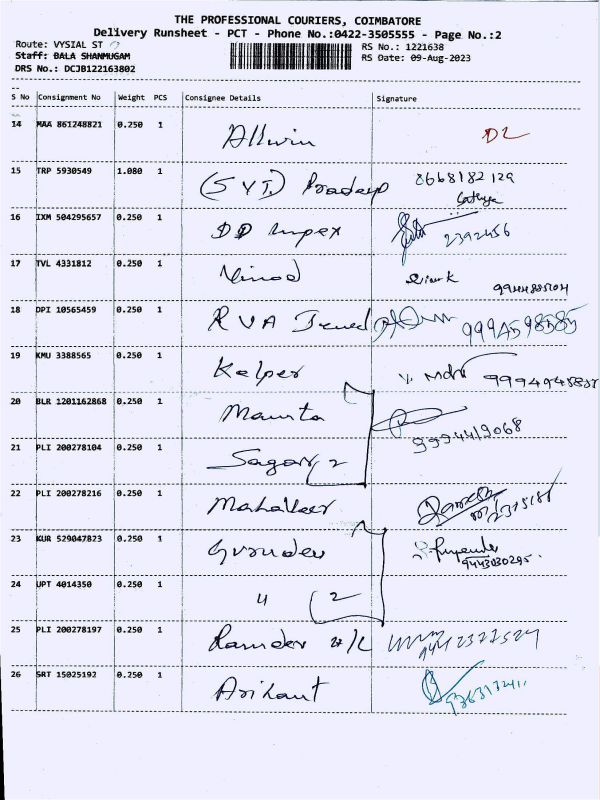 THE PROFESSIONAL COURIERS, COIMBATORE
Delivery Runsheet - PCT - Phone No.:0422-3505555 - Page No.:2
Route: VYSIAL ST
RS No.: 1221638
Staff: BALA SHANMUGAM
RS Date: 09-Aug-2023
DRS No.: DCJB122163802
S No Consignment No Weight PCS Consignee Details Signature
14 MAA 861248821 0.250 1 Allwin DL
15 TRP 5930549 1.080 1 (SVT) Pradeep 8668182129
Sathya
16 IXM 504295657 0.250 1 DD Impex 2392456
17 TVL 4331812 0.250 1 Vinod
18 DPI 10565459 0.250 1 RVA 9994598585
19 KMU 3388565 0.250 1 Kelper
20 BLR 1201162868 0.250 1 Mamta 9994419068
21 PLI 200278104 0.250 1 Sagar 2
22 PLI 200278216 0.250 1 Mahaveer
23 KUR 529047823 0.250 1 Gurudev 9443030295.
24 UPT 4014350 0.250 1 " 2
25 PLI 200278197 0.250 1 Ramdev
26 SRT 15025192 0.250 1 Arihant